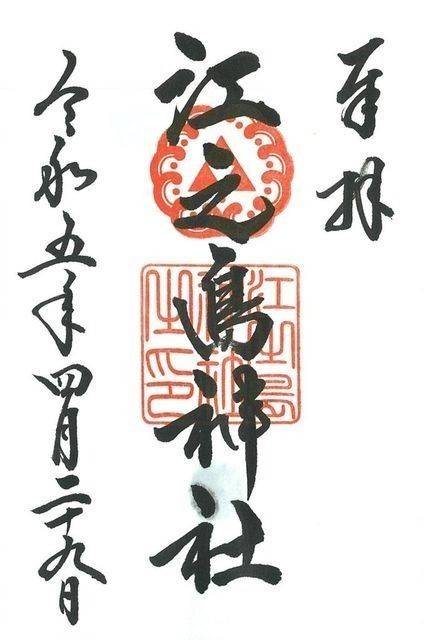 奉拝
江之島神社
江島神社之印
令和五年四月二十九日